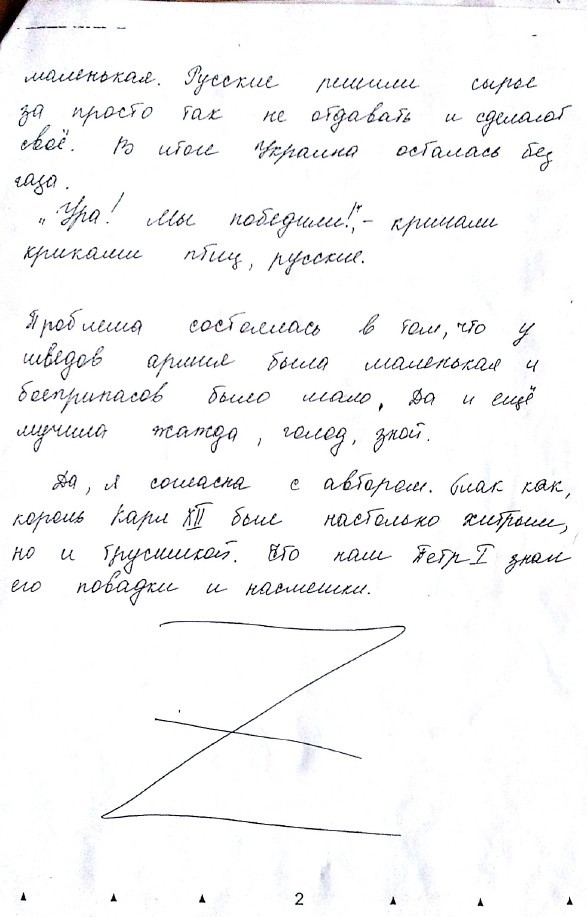 маленькая. Русские решили сырье
за просто так не отдавать и сделают
своё. В итоге Украина осталась без
газа.
„Ура! Мы победили!", – кричали
криками птиц, русские.
Проблема состоялась в том, что у
шведов армия была маленькая и
боеприпасов было мало. Да и ещё
мучила жажда, голод, зной.
Да, я согласна с автором. Так как,
король Карл XII был настолько хитрым,
но и трусишкой. Что наш Петр I знал
его повадки и насмешки.
2